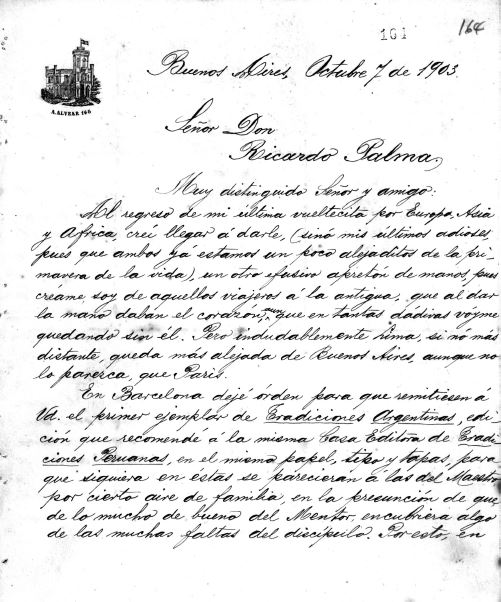 164
101
A. ALVEAR 166
Buenos Aires, Octubre 7 de 1903.
Señor Don
Ricardo Palma,
Muy distinguido Señor y amigo:
Al regreso de mi última vueltecita por Europa, Asia
y Africa, creí llegar á darle, (sinó mis últimos adioses,
pues que ambos ya estamos un poco alejaditos de la pri-
mavera de la vida), un otro efusivo apretón de manos, pues
créame, soy de aquellos viajeros á la antigua, que al dar
la mano daban el corazon, aunque en tantas dádivas voyme
quedando sin él. Pero indudablemente Lima, si nó más
distante, queda más alejada de Buenos Aires, aunque no
lo parezca, que Paris.
En Barcelona dejé órden para que remitiesen á
Vd. el primer ejemplar de Tradiciones Argentinas, edi-
ción que recomendé á la misma Casa Editora de Tradi-
ciones Peruanas, en el mismo papel, tipo y tapas, para
que siquiera en éstas se parecieran á las del Maestro
por cierto aire de familia, en la presunción de que
de lo mucho de bueno del Mentor, encubriera algo
de las muchas faltas del discípulo. Por esto, en